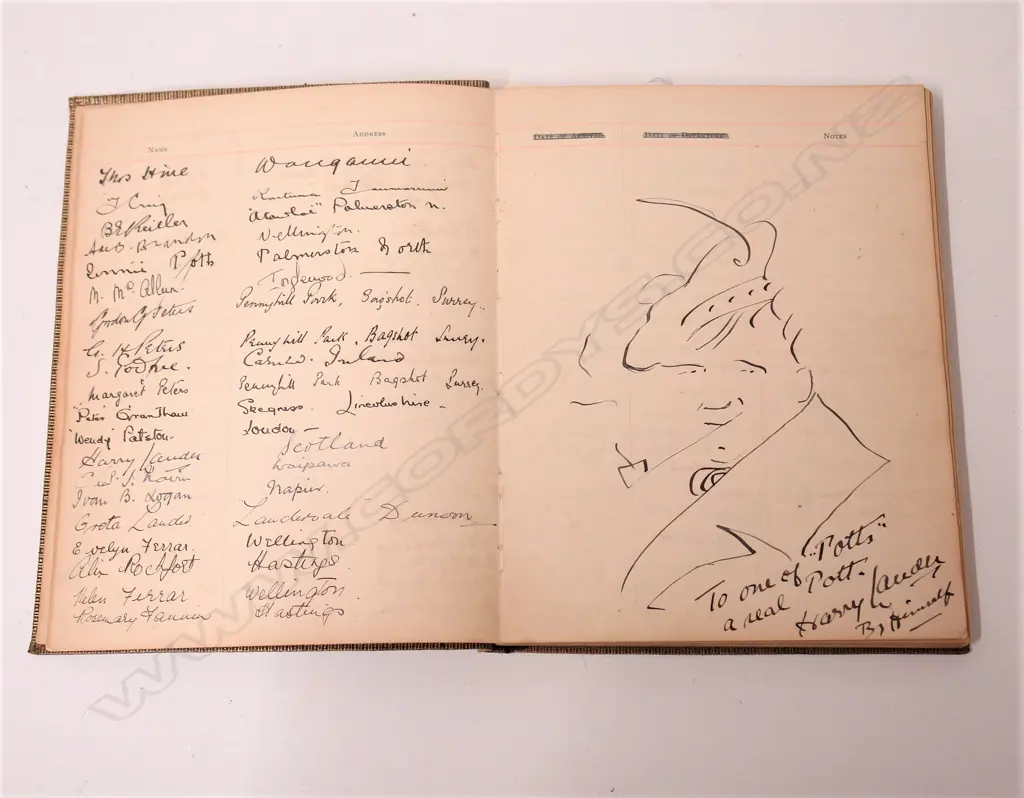 NAME ADDRESS
Thos Hine Wanganui.
J Craig Taumarunui
Palmerston N.
A. B. Brandon Wellington.
Potts Palmerston North
M. McAllum.
Gordon G Peters Pennyhill Park, Bagshot. Surrey.
G. H. Peters Pennyhill Park, Bagshot Surrey.
Ireland
Margaret Peters Pennyhill Park Bagshot Surrey.
"Peter" Grantham Skegness. Lincolnshire -
"Wendy" Palston- London -
Harry Lauder Scotland
Waipawa
Ivan B. Logan Napier.
Greta Lauder Lauderdale Dunoon
Evelyn Ferrar. Wellington.
Alix Rochfort Hastings.
Helen Ferrar Wellington.
Rosemary Fannin Hastings
DATE OF ARRIVAL DATE OF DEPARTURE NOTES
To one of "Potts"
a real Pott.
Harry Lauder
By Himself
WWW.CORDYS.CO.NZ